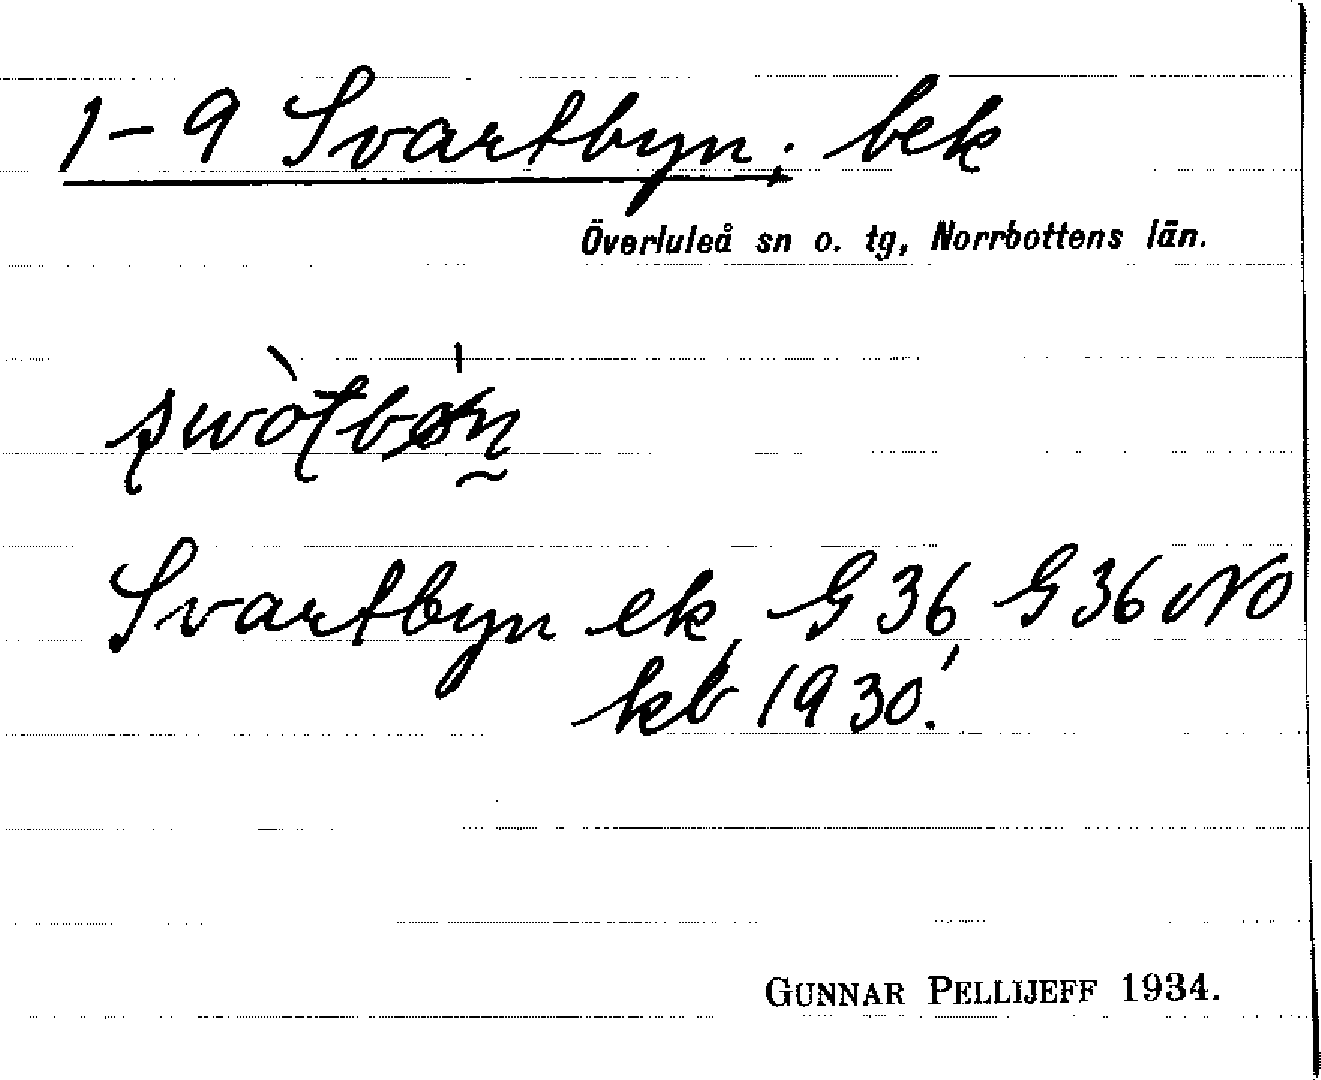 1-9 Svartbyn. bek
Överluleå sn o. tg, Norrbottens län.
Svartbyn ek, G 36, G 36 No
kb 1930.
GUNNAR PELLIJEFF 1934.